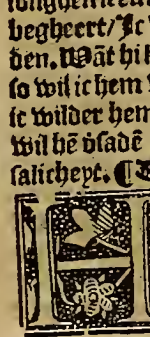 begheert/Ic
den. Wāt hi
so wil ic hem
ic wilder hem
wil hē
salicheyt.